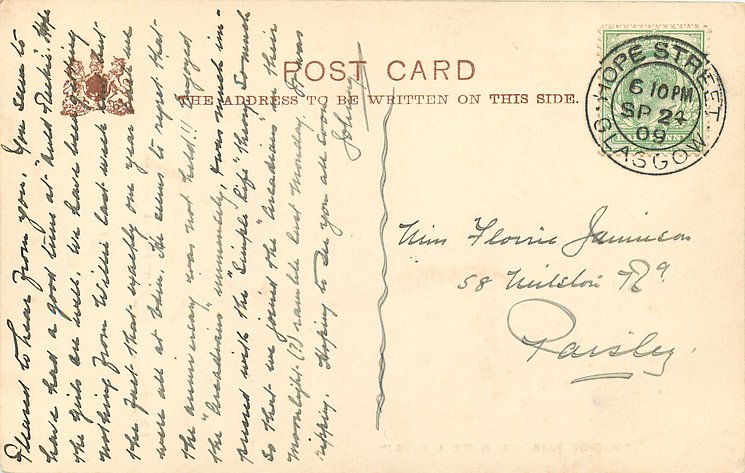 POST CARD
THE ADDRESS TO BE WRITTEN ON THIS SIDE.
HOPE STREET
6 10 PM
SP 24
09
GLASGOW
Miss Florrie Jamieson
58 Rd
Paisley.
Pleased to hear from you. You seem to
have had a good time at "Auld Reekie". Hope
the girls are well. We have been hearing
nothing from Willie last week but
the fact that exactly one year since we
were all at He seems to regret that
the anniversary was not held!! Enjoyed
the "Arcadians" immensely, & was much im-
pressed with the "Simple Life" they so much
so that we joined the "Arcadians" on their
moonlight (?) ramble last Monday. It was
ripping. Hoping to see you all soon
Johnny